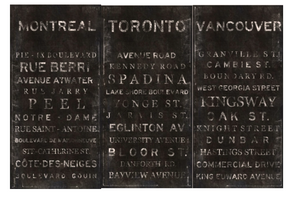 MONTREAL
PIE-IX BOULEVARD
RUE BERRI
AVENUE ATWATER
RUE JARRY
PEEL
NOTRE-DAME
RUE SAINT-ANTOINE
BOULEVARD DE MAISONNEUVE
STE-CATHERINE ST.
CÔTE-DES-NEIGES
BOULEVARD GOUIN
TORONTO
AVENUE ROAD
KENNEDY ROAD
SPADINA
LAKE SHORE BOULEVARD
YONGE ST.
JARVIS ST.
EGLINTON AV
UNIVERSITY AVENUE
BLOOR ST.
DANFORTH RD.
BAYVIEW AVENUE
VANCOUVER
GRANVILLE ST.
CAMBIE ST.
BOUNDARY RD.
WEST GEORGIA STREET
KINGSWAY
OAK ST.
KNIGHT STREET
DUNBAR
HASTINGS STREET
COMMERCIAL DRIVE
KING EDWARD AVENUE